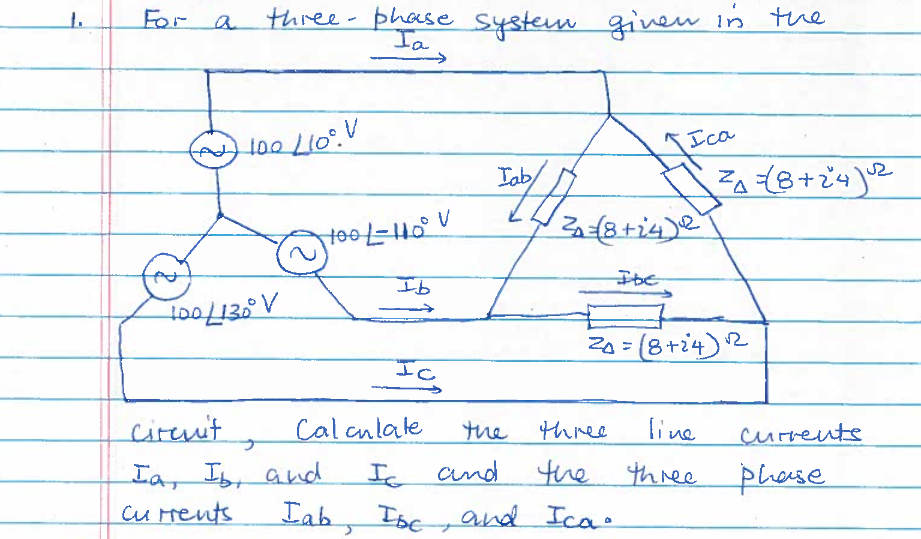 1. For a three-phase system given in the
Ia
100∠10° V
Iab
Ica
Z△=(8+i4)Ω
100∠-110° V
Z△=(8+i4)Ω
100∠130° V
Ib
Ibc
Z△=(8+i4)Ω
Ic
circuit, Calculate the three line currents
Ia, Ib, and Ic and the three phase
currents Iab, Ibc, and Ica.